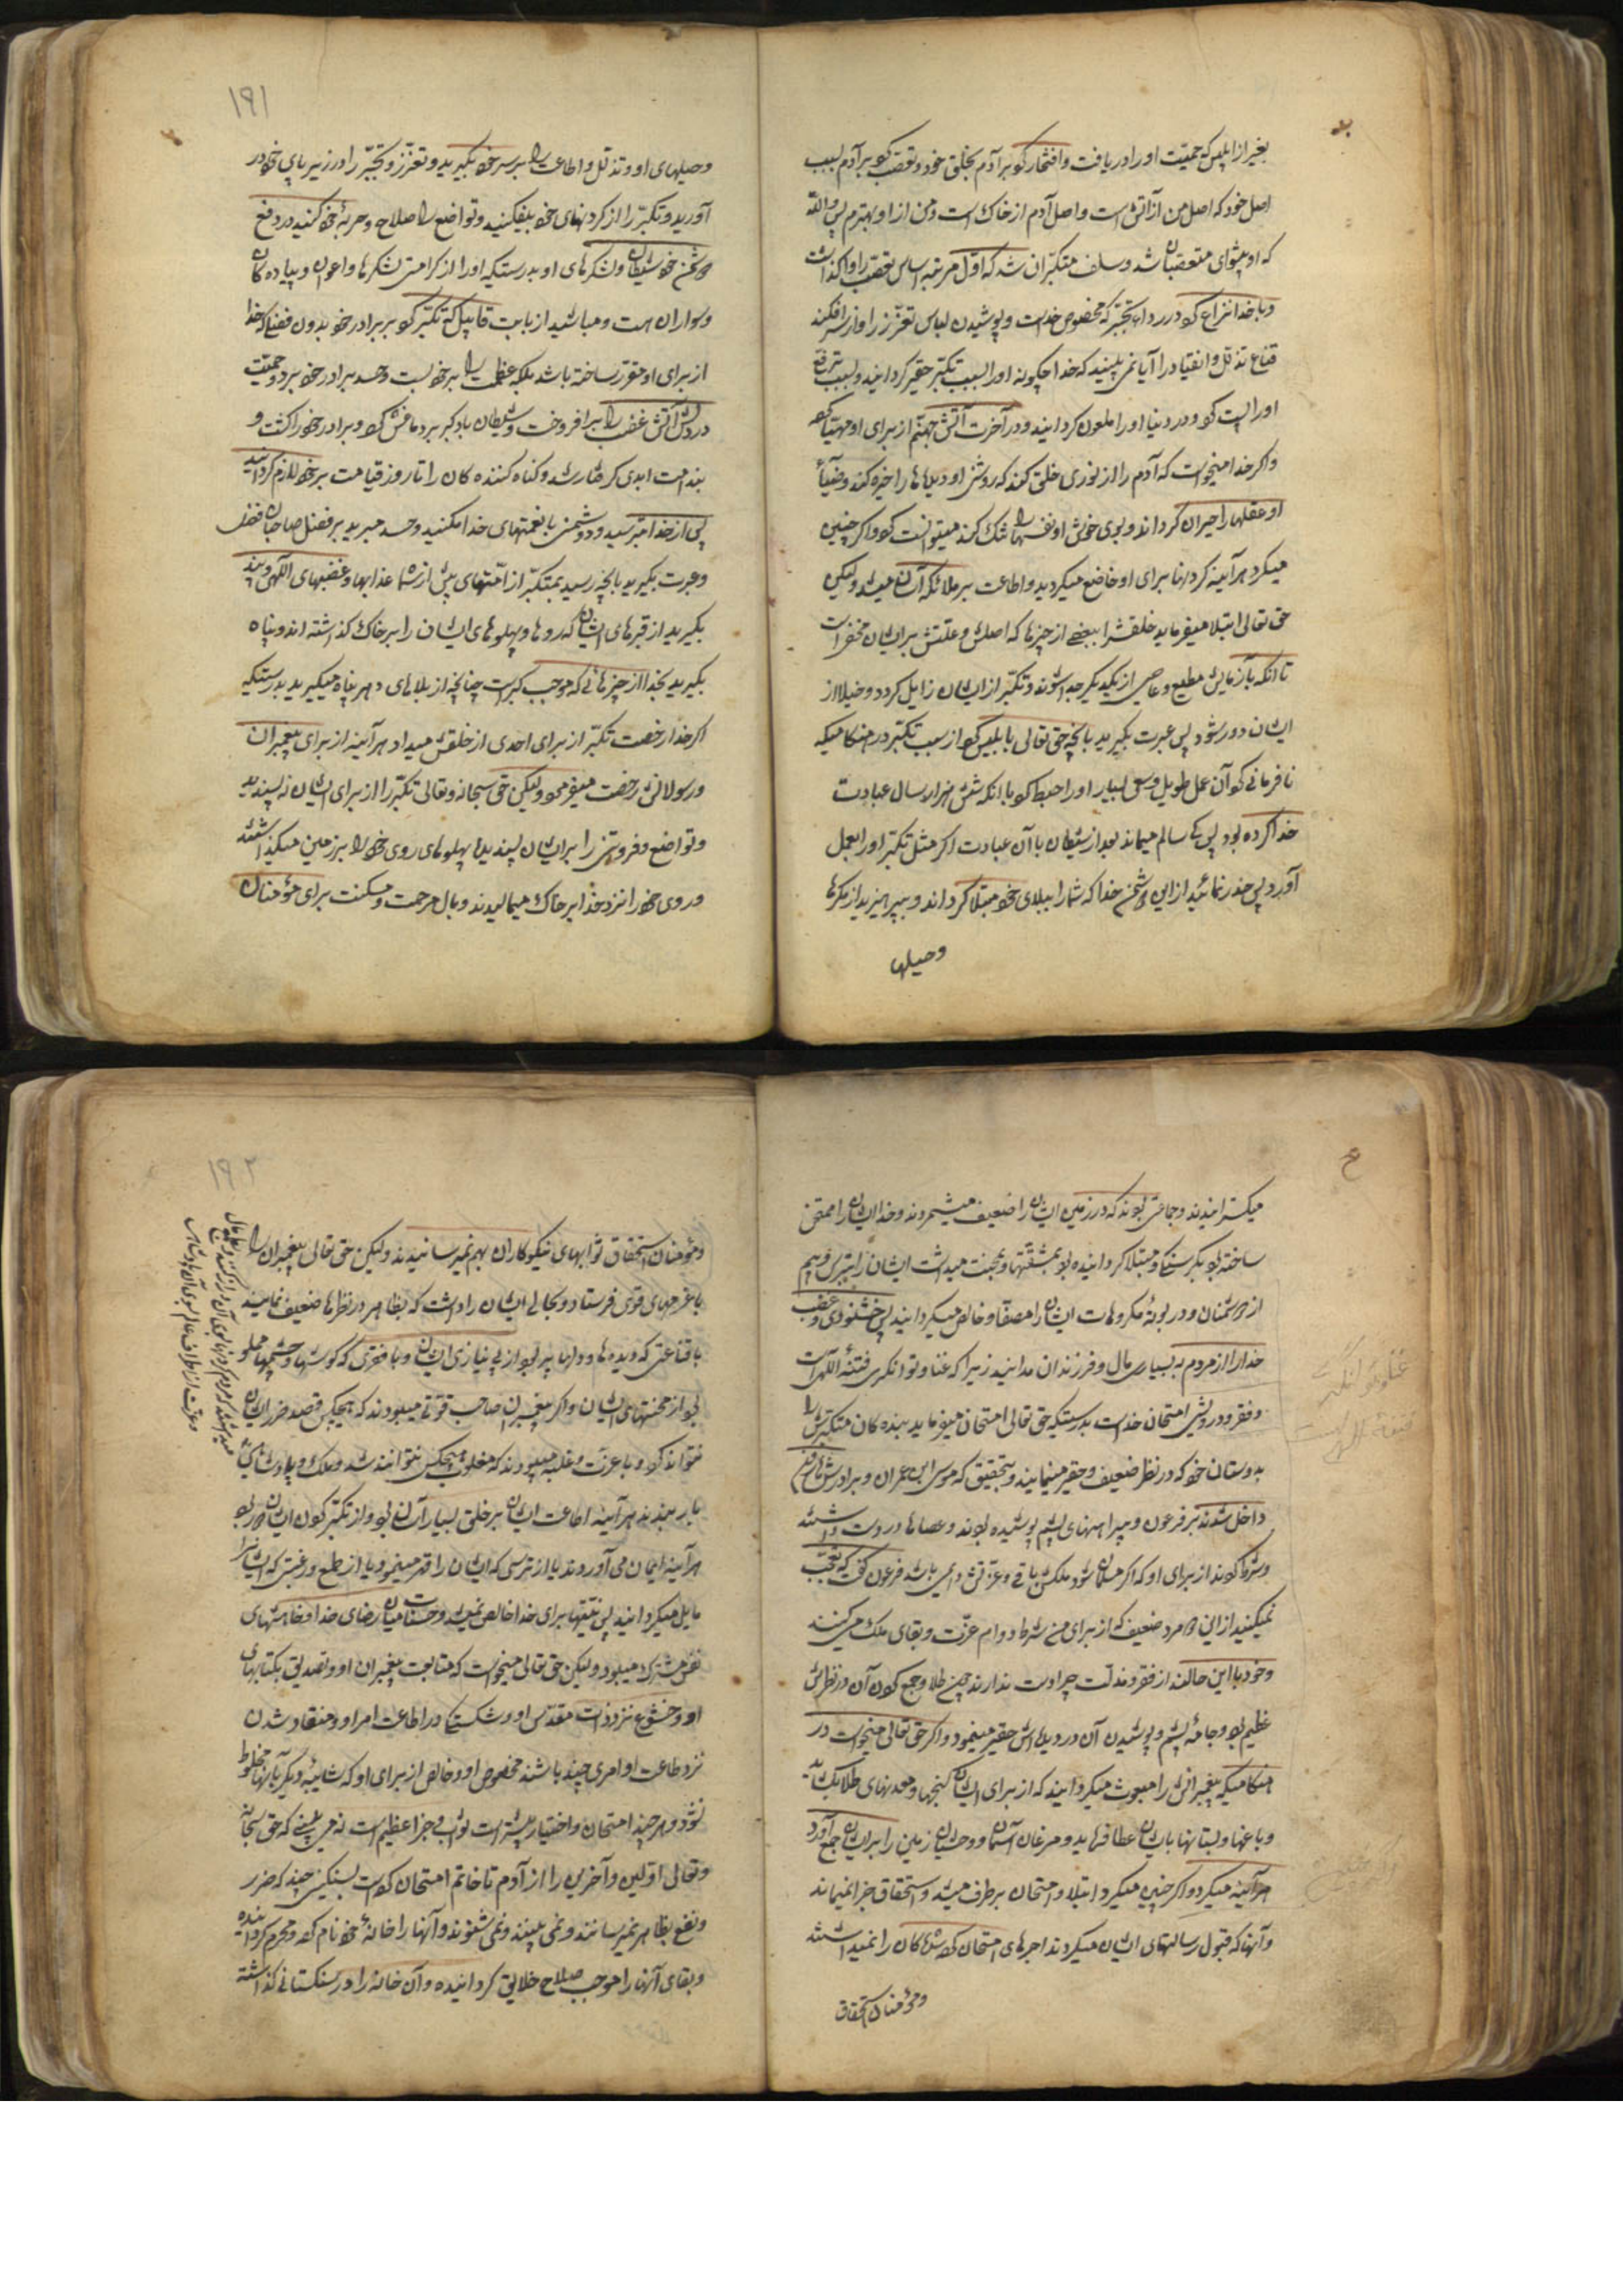 بغیر از ابلیس که حمیّت او را دریافت و افتخار کرد بر آدم بخلق خود و تعصّب کرد بر آدم بسبب
اصل خود که اصل من از آتش است و اصل آدم از خاک است و من از او بهترم پس و الله
که او پیشوای متعصّبان شد و سلف متکبّران شد که اوّل مرتبه اساس تعصّب را او گذاشت
و با خدا نزاع کرد در رداء تجبّر که مخصوص خداست و پوشیدن لباس تعزّز را و از سر افکند
قناع تذلّل و انقیاد را آیا نمی بینید که خدا چگونه او را بسبب تکبّر حقیر گردانید و بسبب ترفّع
او را پست کرد و در دنیا او را ملعون گردانید و در آخرت آتش جهنّم از برای او مهیّا کرد
و اگر خدا میخواست که آدم را از نوری خلق کند که روشنی او دیدها را خیره کند و ضیاء
او عقلها را حیران گرداند و بوی خوش او نفسها را تنگ کند میتوانست کرد و اگر چنین
میکرد هر آینه گردنها برای او خاضع میگردید و اطاعت بر ملائکه آسان میشد ولیکن
حق تعالی ابتلا میفرماید خلقش را ببعضی از چیزها که اصلش و علّتش بر ایشان مخفی است
تا آنکه بآزمایش مطیع و عاصی از یکدیگر جدا شوند و تکبّر از ایشان زایل گردد و خیلا از
ایشان دور شود پس عبرت بگیرید بآنچه حق تعالی بابلیس کرد از سبب تکبّر در هنگامیکه
نافرمانی کرد آن عمل طویل و سعی بسیار او را حبط کرد با آنکه شش هزار سال عبادت
خدا کرده بود پس که سالم میماند بعد از شیطان با آن عبادت اگر مثل تکبّر او را بعمل
آورد پس حذر نمائید از این دشمن خدا که شما را ببلای خود مبتلا گرداند و بپرهیزید از مکرها
وحیلها
۱۹۱
وحیلهای او و تذلّل و اطاعت را بر سر خود بگیرید و تعزّز و تجبّر را در زیر پای خود در
آورید و تکبّر را از گردنهای خود بیفکنید و تواضع را صلاح و حربۀ خود کنید در دفع
دشمن خود شیطان و لشکرهای او بدرستیکه او را از هر امّتی لشکرها و اعوان و پیاده گان
و سواران هست و مباشید از بابت قابیل که تکبّر کرد بر برادر خود بدون فضلی که خدا
از برای او مقرّر ساخته باشد بلکه عظمت را بر خود بست و حسد برادر خود برد و حمیّت
در دلش آتش غضب را برافروخت و شیطان باد کبر بر دماغش کرد و برادر خود را کشت و
بندامت ابدی گرفتار شد و گناه کشنده کان را تا روز قیامت بر خود لازم گردانید
پس از خدا بترسید و دشمنی با نعمتهای خدا مکنید و حسد مبرید بر فضل صاحبان فضل
و عبرت بگیرید بآنچه رسید بمتکبّر از امّتهای پیش از شما عذابها و غضبهای الٓهی و پند
بگیرید از قبرهای ایشان که روها و پهلوهای ایشان را بر خاک گذاشته اند و پناه
بگیرید بخدا از چیزهائی که موجب کبر است چنانچه از بلاهای دهر پناه میگیرید بدرستیکه
اگر خدا رخصت تکبّر از برای احدی از خلقش میداد هر آینه از برای پیغمبران
و رسولانش رخصت میفرمود ولیکن حق سبحانه و تعالی تکبّر را از برای ایشان نه پسندید
و تواضع و فروتنی را بر ایشان پسندید پهلوهای روی خود را بر زمین میگذاشتند
و روی خود را نزد خدا بر خاک میمالیدند و بال مرحمت و مسکنت برای مؤمنان
میکسترانیدند و جماعتی بودند که در زمین ایشان را ضعیف میشمردند و خدا ایشان را ممتحن
ساخته بود بگرسنگی و مبتلا گردانیده بود بمشقّتها و بمحنت میداشت ایشان را بترس و بیم
از دشمنان و در بوتۀ مکروهات ایشان را مصفّا و خالص میگردانید پس خشنودی و غضب
خدا را از مردم به بسیاری مال و فرزندان مدانید زیرا که غنا و توانگری فتنۀ الٓهی است
و فقر و درویشی امتحان خداست بدرستیکه حق تعالی امتحان میفرماید بنده کان متکبّرش را
بدوستان خود که در نظر ضعیف و حقیر مینمایند و بتحقیق که موسی ابن عمران و برادرش هارون
داخل شدند بر فرعون و پیراهنهای پشم پوشیده بودند و عصاها در دست داشتند
و شرط کردند از برای او که اگر مسلمان شود ملکش باقی و عزّتش دایمی باشد فرعون گفت که تعجّب
نمیکنید از این دو مرد ضعیف که از برای من شرط دوام عزّت و بقای ملک میکنند
و خود با این حالند از فقر و مذلّت چرا دست ندارند چون طلا و جمع کردن آن در نظرش
عظیم بود و جامۀ پشم و پوشیدن آن در دیده اش حقیر مینمود و اگر حق تعالی میخواست در
هنگامیکه پیغمبرانش را مبعوث میگردانید که از برای ایشان گنجها و معدنهای طلا بگشاید
و باغها و بستانها بایشان عطا فرماید و مرغان آسمان و وحشیان زمین را برایشان جمع آورد
هر آینه میکرد و اگر چنین میکرد ابتلا و امتحان برطرف میشد و استحقاق جزا نمیماند
و آنها که قبول رسالتهای ایشان میکردند اجرهای امتحان کرده شده کان را نمیداشتند
غنا و توانگری
فتنۀ الٓهی است
و مؤمنان استحقاق
۱۹۲
و مؤمنان استحقاق ثوابهای نیکوکاران بهم نمیرسانیدند ولیکن حق تعالی پیغمبران را
با عزمهای قوی فرستاد و بحالی ایشان را داشت که بظاهر در نظرها ضعیف نمایند
با قناعتی که دیده ها و دلها پر بود از بی نیازی ایشان و با فقری که گوشها و چشمها مملو
بود از محنتهای ایشان و اگر پیغمبران صاحب قوّتی میبودند که هیچکس قصد ضرر ایشان
نتواند کرد و با عزّت و غلبه میبودند که مغلوب هیچکس نتوانند شد و ملک و پادشاهی
هر آینه اطاعت ایشان بر خلق بسیار آسان بود و از تکبّر کردن ایشان دور بود
هر آینه ایمان می آوردند یا از ترسی که ایشان را قهر مینمود یا از طمع و رغبتی که ایشان را
مایل میگردانید پس نیّتها برای خدا خالص نمیشد و حسنات میان رضای خدا و خواهشهای
نفس مشترک میبود ولیکن حق تعالی میخواست که متابعت پیغمبران او و تصدیق بکتابهای
او و خشوع نزد ذات مقدّس او و شکستگی در اطاعت امر او و منقاد شدن
نزد طاعت او امری چند باشند مخصوص او و خالص از برای او که شائبۀ دیگر بآنها مخلوط
نشود و هر چند امتحان و اختیار بیشتر است ثواب و جزا عظیم است نه می بینی که حق سبحانه
و تعالی اوّلین و آخرین را از آدم تا خاتم امتحان کرده است بسنگی چند که ضرر
و نفع بظاهر نمیرسانند و نمی بینند و نمی شنوند و آنها را خانۀ خود نام کرد و محترم گردانیده
و بقای آنها را موجب صلاح خلایق گردانیده و آن خانه را در سنگستانی گذاشته